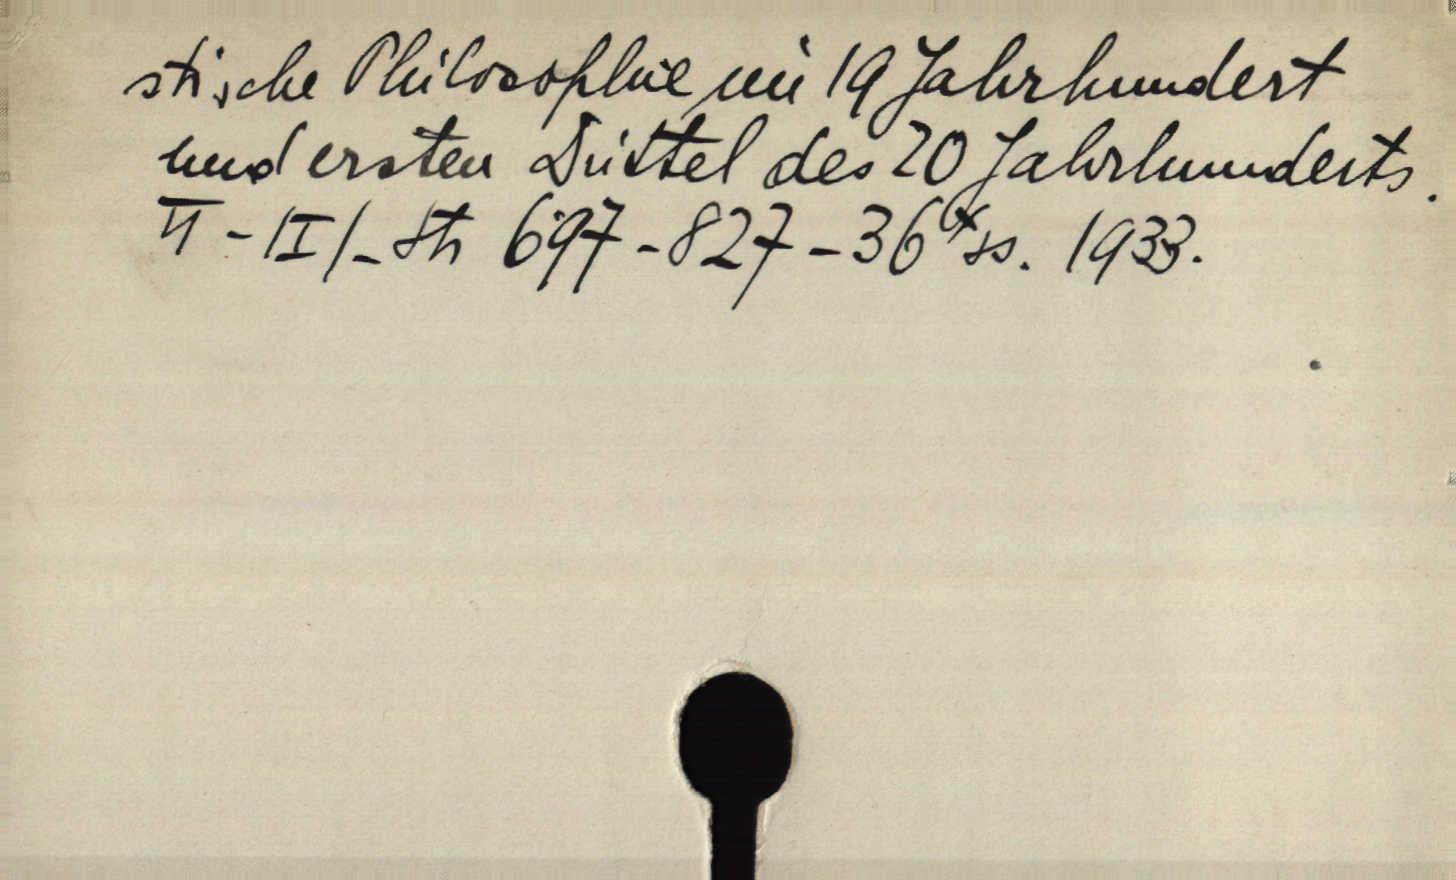 stische Philosophie im 19 Jahrhundert
und ersten Drittel des 20 Jahrhunderts.
II - III - Str 697 - 827 - 36* ss. 1933.